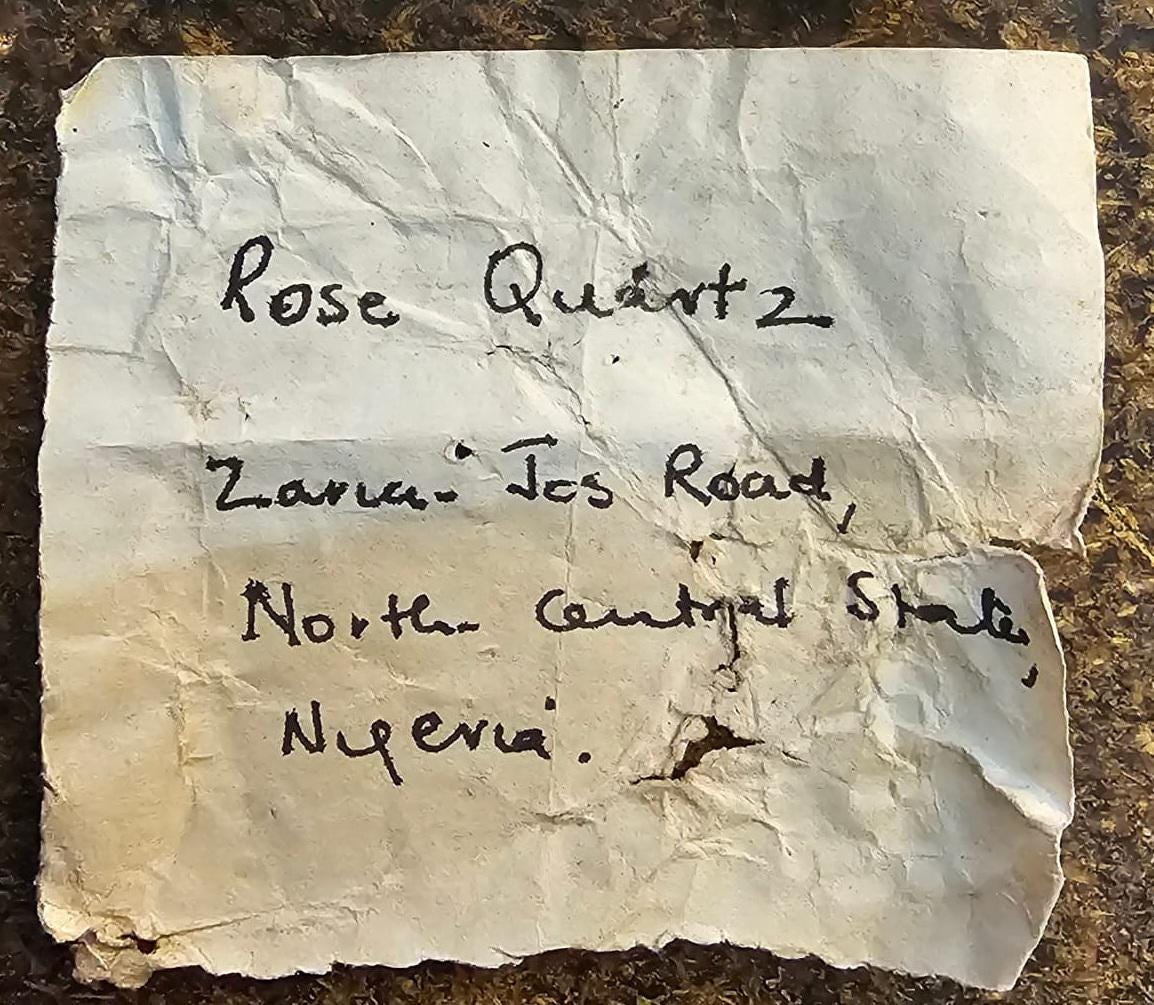 Rose Quartz
Zaria-Jos Road,
North Central State,
Nigeria.